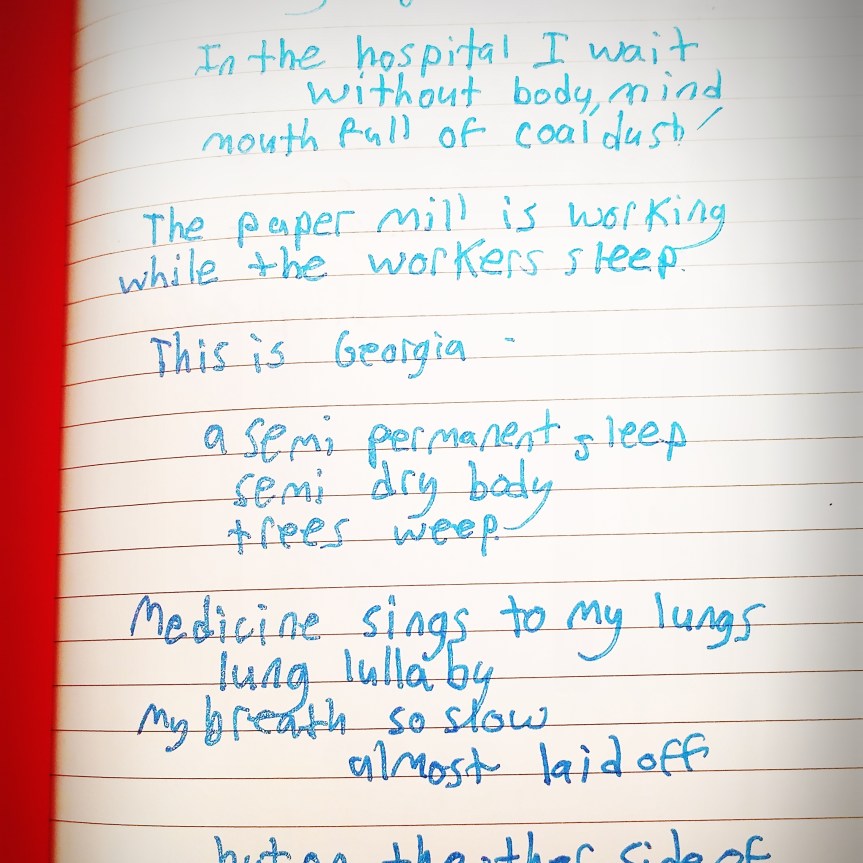 In the hospital I wait
without body, mind
mouth full of coal dust/
The paper mill is working
while the workers sleep.
This is Georgia -
a semi permanent sleep
semi dry body
trees weep
Medicine sings to my lungs
lung lullaby
my breath so slow
almost laid off
but on the other side of